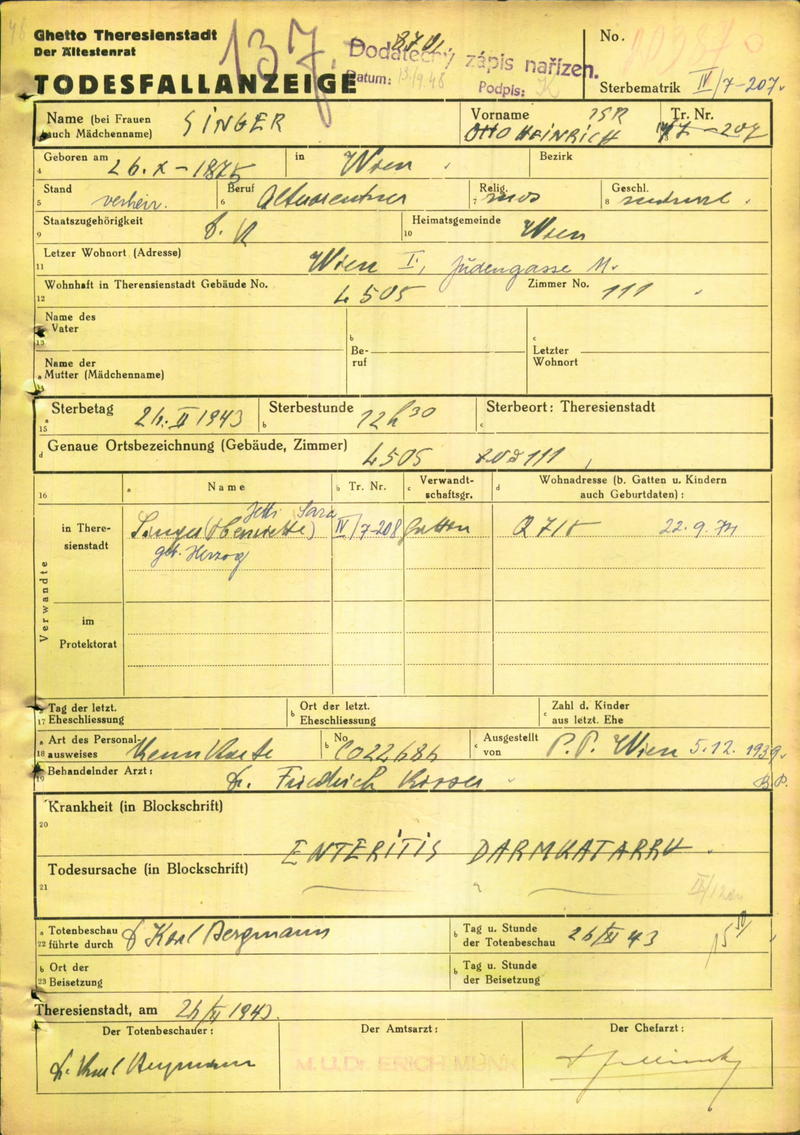 Ghetto Theresienstadt
Der Ältestenrat
TODESFALLANZEIGE
137.
Dodatečný zápis nařízen.
Datum: 13/9.48 Podpis:
No.
Sterbematrik IV/7-207.
Name (bei Frauen auch Mädchenname) SINGER
Vorname OTTO HEINRICH ISR
Tr. Nr. IV/7-207
4 Geboren am 26.X-1875 in Wien. Bezirk
5 Stand verheir. 6 Beruf 7 Relig. mos 8 Geschl.
9 Staatszugehörigkeit D.R 10 Heimatsgemeinde Wien
11 Letzer Wohnort (Adresse) Wien I., Judengasse 11.
12 Wohnhaft in Theresienstadt Gebäude No. L 505 Zimmer No. 111
13 a Name des Vater b Beruf c Letzter Wohnort
14 a Name der Mutter (Mädchenname)
15 a Sterbetag 26. II 1943 b Sterbestunde 12h30 c Sterbeort: Theresienstadt
d Genaue Ortsbezeichnung (Gebäude, Zimmer) L 505 111
16 a Name b Tr. Nr. c Verwandtschaftsgr. d Wohnadresse (b. Gatten u. Kindern auch Geburtdaten):
Verwandte
in Theresienstadt
Jetti Sara
Singer (Henriette) IV/7-208 Gattin Q 715 22.9.74
geb. Herzog
im Protektorat
17 a Tag der letzt. Eheschliessung b Ort der letzt. Eheschliessung c Zahl d. Kinder aus letzt. Ehe
18 a Art des Personalausweises Kennkarte b No C022686 c Ausgestellt von P.P. Wien 5.12.1939.
B.P.
19 Behandelnder Arzt: Dr. Friedrich
20 Krankheit (in Blockschrift)
ENTERITIS DARMKATARRH.
21 Todesursache (in Blockschrift)
22 a Totenbeschau führte durch Dr Karl Bergmann b Tag u. Stunde der Totenbeschau 26/II 43 15 30
23 b Ort der Beisetzung b Tag u. Stunde der Beisetzung
Theresienstadt, am 26/II 1943.
Der Totenbeschauer: Der Amtsarzt: Der Chefarzt:
Dr. Karl Bergmann M.U.Dr. ERICH MUNK